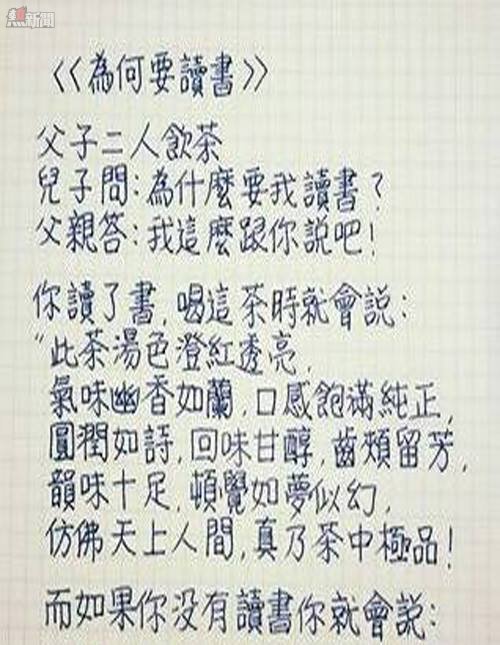 熱新聞
<<為何要讀書>>
父子二人飲茶
兒子問:為什麼要我讀書?
父親答:我這麼跟你說吧!
你讀了書,喝這茶時就會說:
"此茶湯色澄紅透亮,
氣味幽香如蘭,口感飽滿純正,
圓潤如詩,回味甘醇,齒頰留芳,
韻味十足,頓覺如夢似幻,
仿佛天上人間,真乃茶中極品!
而如果你没有讀書你就會說: